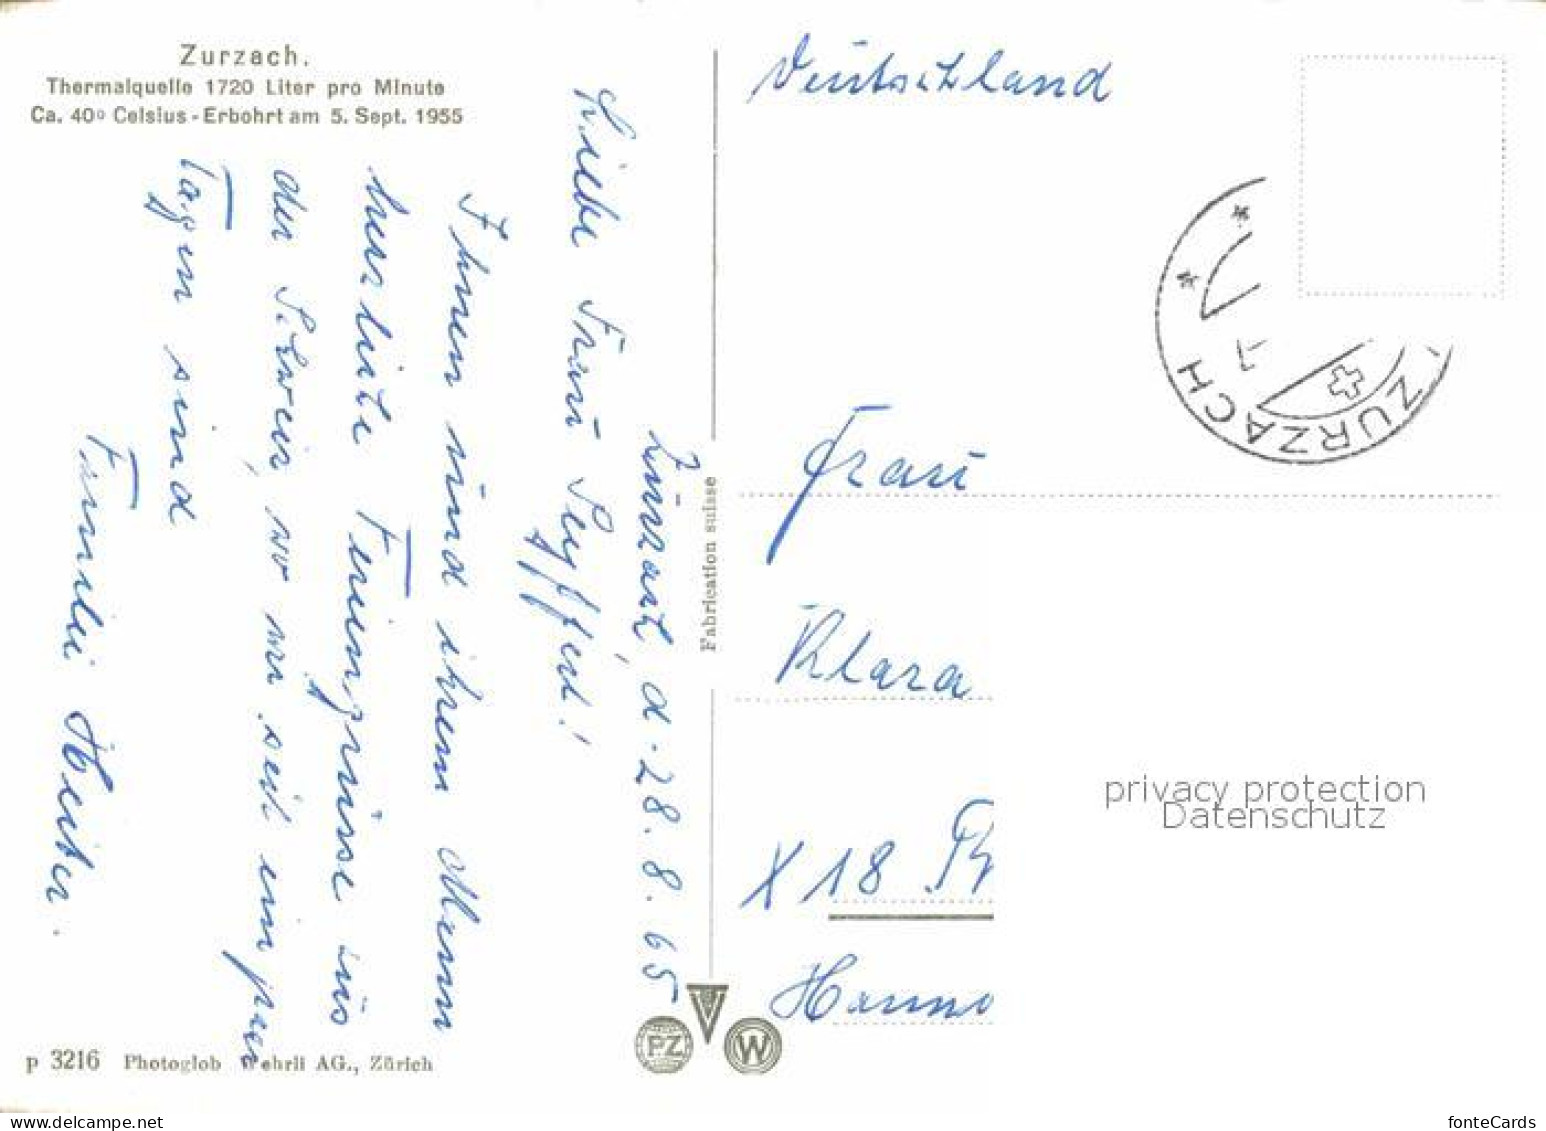 Zurzach.
Thermalquelle 1720 Liter pro Minute
Ca. 40° Celsius - Erbohrt am 5. Sept. 1955
Zürich, d. 28.8.65
Liebe Frau Seyffert!
Ihnen und ihrem Mann
herzliche Feriengrüsse aus
der Schweiz, wo wir seit ein paar
Tagen sind
Familie
Fabrication suisse
p 3216 Photoglob Wehrli AG., Zürich
PZ
W
Deutschland
ZURZACH
ZURZACH
7
Frau
Klara
X 18
Hanno
privacy protection
Datenschutz
www.delcampe.net
fonteCards